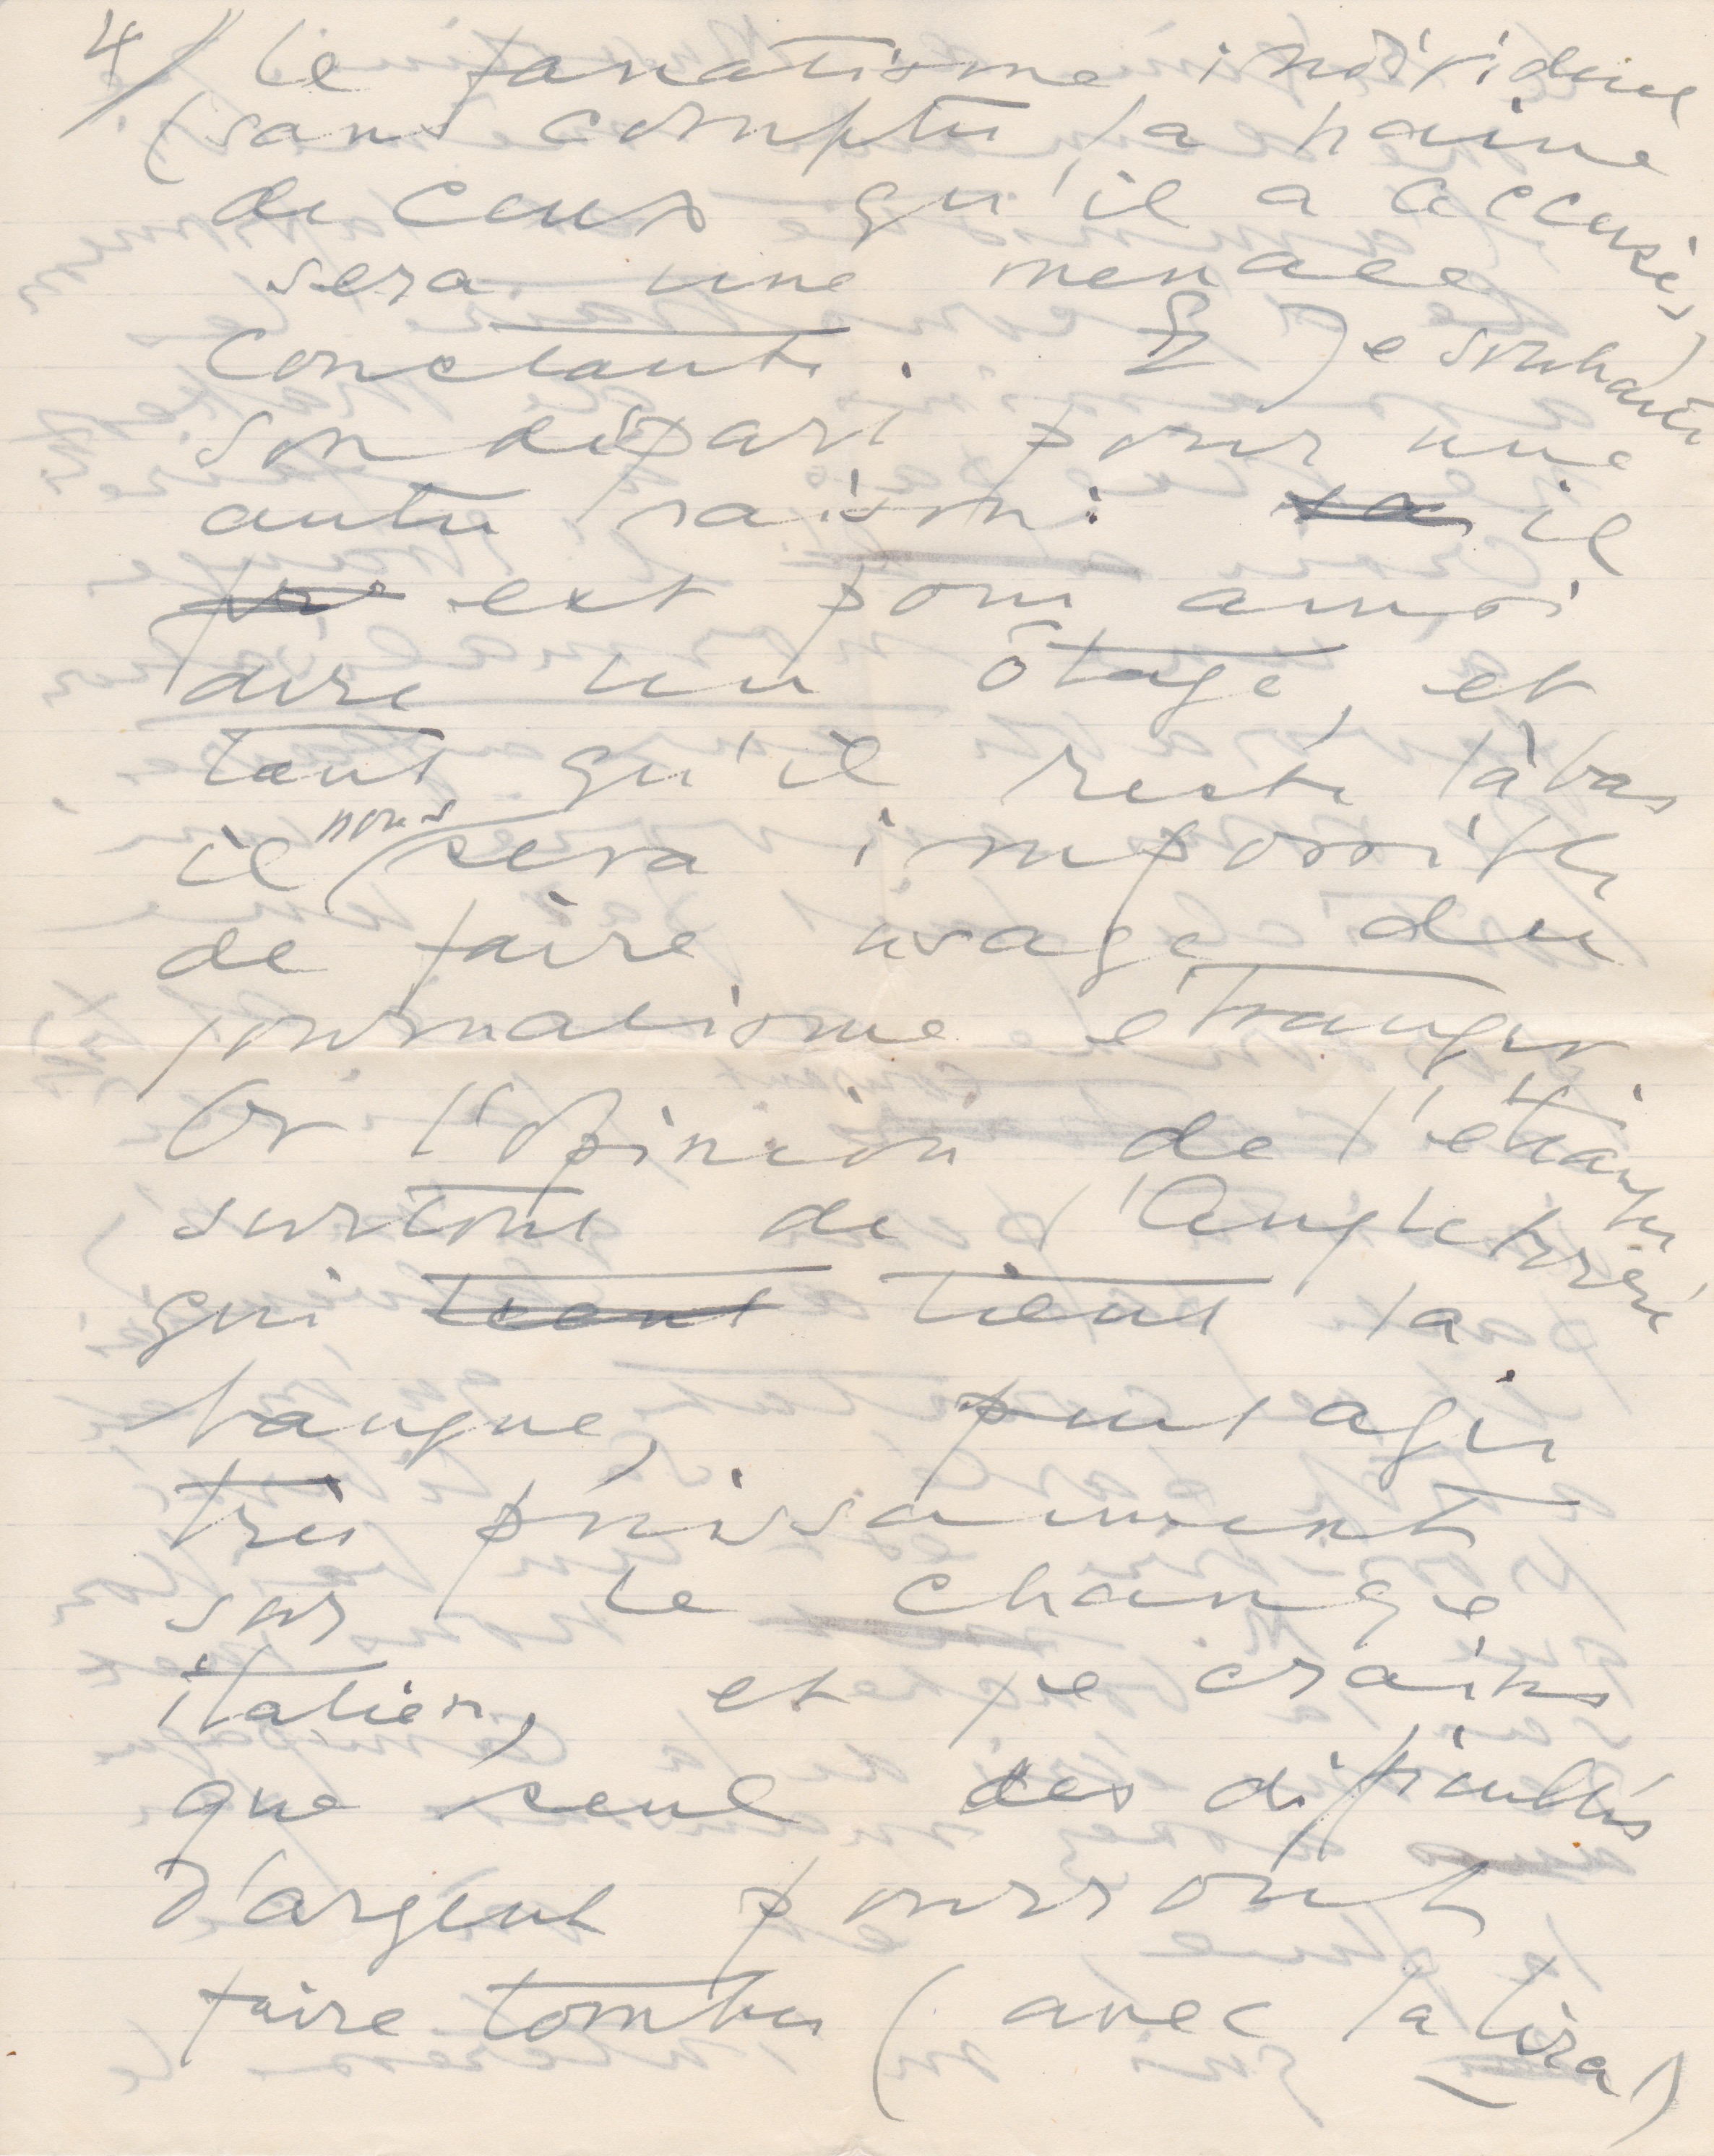 4/ Le fanatisme individuel
(sans compter la haine
de ceux qu'il a accusés)
sera une menace
constante. Je souhaite
son départ pour une
autre raison : il
est pour ainsi
dire un ôtage, et
tant qu'il reste là bas
il nous sera impossible
de faire usage du
journalisme étranger
Or l'opinion de l'étranger
surtout de l'Angleterre
qui tient tient la
banque, peut agir
très puissamment
sur le change
italien, et je crains
que seul des difficultés
d'argent pourront
faire tomber (avec la lira)